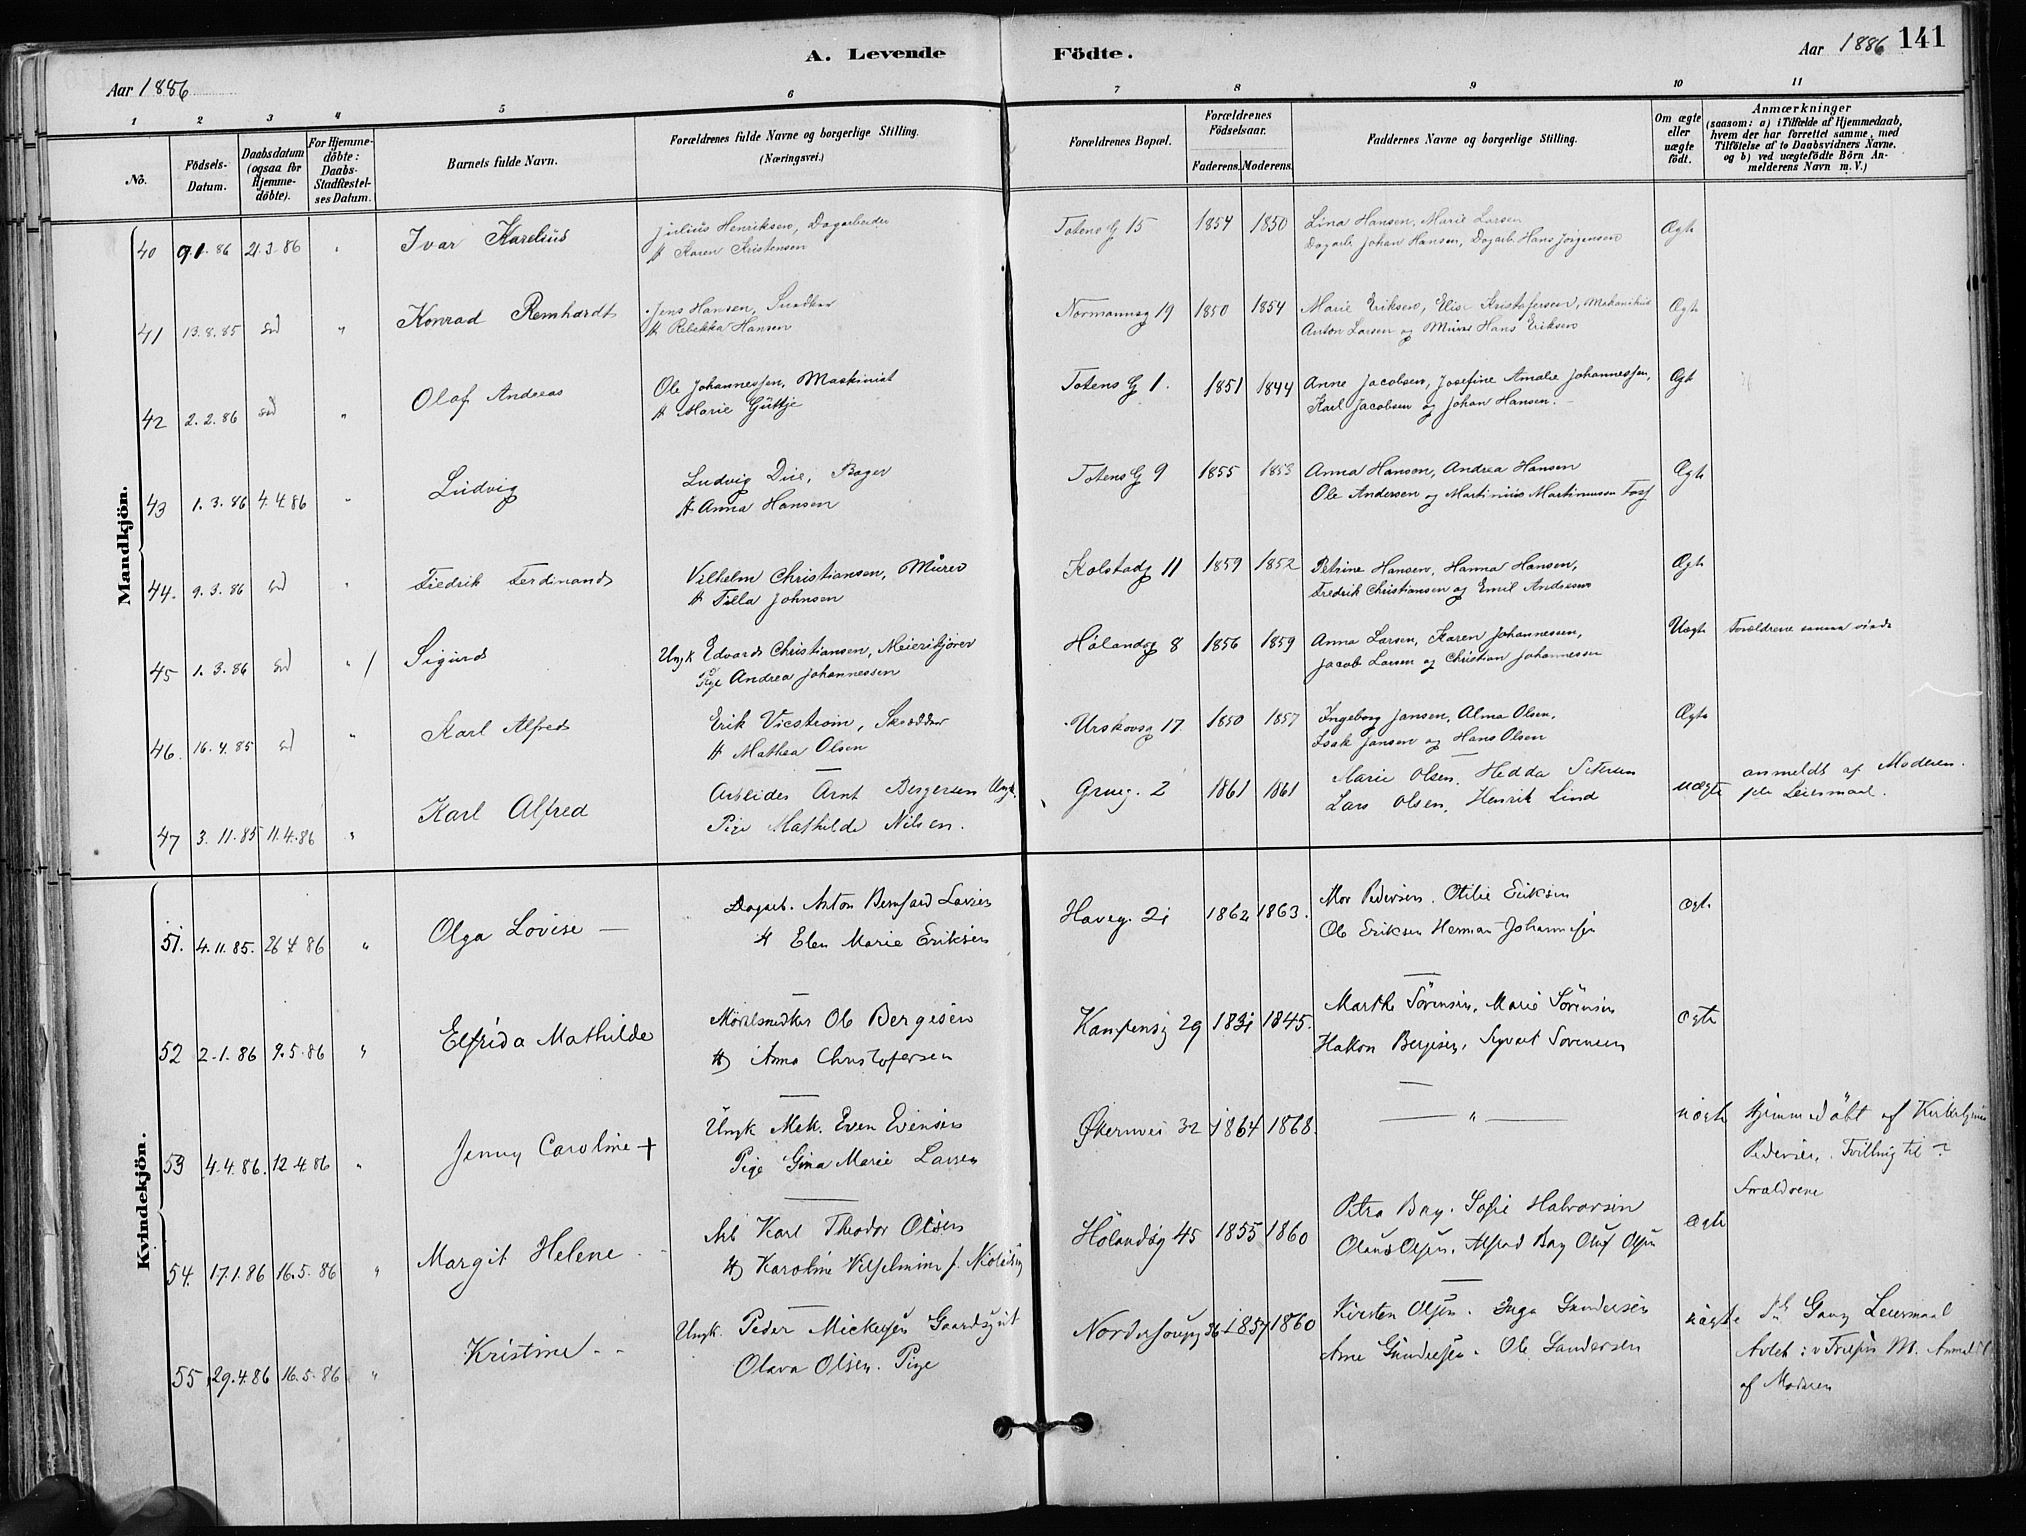 A. Levende Födte.
Aar 1886
Aar 1886 141
1 2 3 4 5 6 7 8 9 10 11
No.
Födsels-Datum.
Daabsdatum (ogsaa for Hjemme-döbte).
For Hjemme-döbte: Daabs-Stadfæstel-ses Datum.
Barnets fulde Navn.
Forældrenes fulde Navne og borgerlige Stilling.
(Næringsvei.)
Forældrenes Bopæl.
Forældrenes Födselsaar.
Faderens. Moderens.
Faddernes Navne og borgerlige Stilling.
Om ægte eller uægte födt.
Anmærkninger
(saasom: a) i Tilfælde af Hjemmedaab, hvem der har forrettet samme, med Tilföielse af to Daabsvidners Navne, og b) ved uægtefödte Börn An-melderens Navn m. V.)
Mandkjön.
40 9.1.86 21.3.86 " Ivar Karelius Julius Henriksen, Dagarbeider Totens G 15 1854 1850 Lina Hansen, Marie Larsen Ægte
H Karen Kristensen Dagarb. Johan Hansen, Dagarb. Hans Jörgensen
41 13.8.85 " Konrad Reinhardt Jens Hansen, Snedker Normannsg 19 1850 1854 Marie Eriksen, Elise Kristofersen, Mekanikus Ægte
H Rebekka Hansen Anton Larsen og Murer Hans Eriksen
42 2.2.86 " Olaf Andreas Ole Johannessen, Maskinist Totens G 1. 1851 1844 Anne Jacobsen, Josefine Amalie Johannessen, Ægte
H Marie Güttje Karl Jacobsen og Johan Hansen.
43 1.3.86 4.4.86 " Ludvig Ludvig Due, Bager Totens G 9 1855 1853 Anna Hansen, Andrea Hansen Ægte
H Anna Hansen Ole Andersen og Martinius Martinussen
44. 9.3.86 " Fredrik Ferdinand Vilhelm Christiansen, Murer Kolstadg 11 1859 1852 Petrine Hansen, Hanna Hansen, Ægte
H Tilla Johnsen Fredrik Christiansen og Emil Andresen
45 1.3.86 " Sigurd Ungk Edvard Christiansen, Meierikjører Hölandsg 8 1856 1859 Anna Larsen, Karen Johannessen, Uægte Forældrene samme
Pige Andrea Johannessen Jacob Larsen og Christian Johannessen
46. 16.4.85 " Karl Alfred Erik Vicström, Skrædder Urskovsg 17 1850 1857 Ingeborg Jansen, Alma Olsen, Ægte
H Mathea Olsen Isak Jansen og Hans Olsen
47 3.11.85 11.4.86 " Karl Alfred Arbeider Arnt Bergersen Ungk. Grueg. 2 1861 1861 Marie Olsen. Hedda Petersen uægte anmeldt af Moderen.
Pige Mathilde Nilsen. Lars Olsen. Henrik Lind Leiermaal.
Kvindekjön.
51. 4.11.85. 26 4 86 " Olga Lovise — Dagarb. Anton Bernhard Larsen Haveg. 21 1862 1863. Mor Pedersen. Otilie Eriksen ægte
H Elen Marie Eriksen Ole Eriksen Herman Johannesen
52 2.1.86 9.5.86 " Elfrida Mathilde Möbelsnedker Ole Bergesen Kampensg 29 1831 1845. Marthe Sörensen, Marie Sörensen ægte
H Anna Christofersen Hakon Bergesen, Syvert Sörensen
53 4.4.86. 12 4 86 " Jenny Caroline + Ungk Mek. Even Evensen Økernvei 32 1864 1868. — " — uægte Hjemmedöbt af
Pige Gina Marie Larsen Pedersen. Tvilling til
Forældrene
54. 17.1.86 16.5.86 " Margit Helene Arb Karl Theodor Olsen Hölandsg 45 1855 1860 Petra Bay. Sofie Halvorsen ægte
H Karoline Vilhelmine f. Nicolaisen Olaus Olsen. Alfred Bay Oluf Olsen
55 29.4.86 16.5.86 " Kristine Ungk. Peder Mickelsen Gaardsgut 36 1857 1860 Kirsten Olsen. Inga Gundersen uægte Gang Leiermaal
Olava Olsen. Pige Arne Gundersen. Ole Gundersen
af Moderen